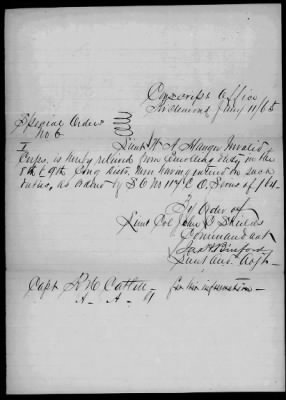 Conscript Office
Richmond Jany 11/65
Special Order
No 6
I Lieut W A Munger Invalid
Corps, is hereby relieved from Enrolling duty in the
8th & 9th Cong Dists. from having on such
duties, as orders by S O No 114 C O Series of 1864.
By Order of
Lieut Col John C Shields
Commandant
Jas H Binford
Lieut And. Adjt.
Capt R W Cattell
A. A. G for his information